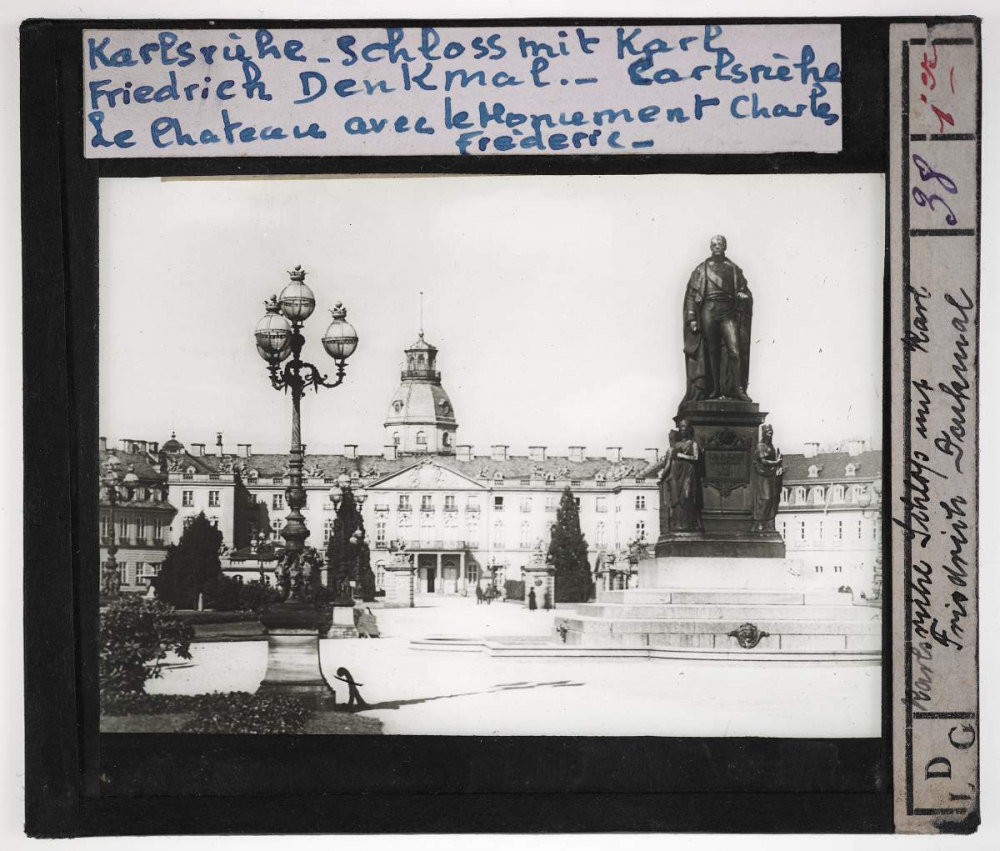 Karlsrühe - Schloss mit Karl
Friedrich Denkmal. - Carlsrühe
Le Chateau avec le Monument Charles
Fréderic -
1er -
38
Karlsruhe Schloss mit Karl
Friedrich Denkmal
L D G